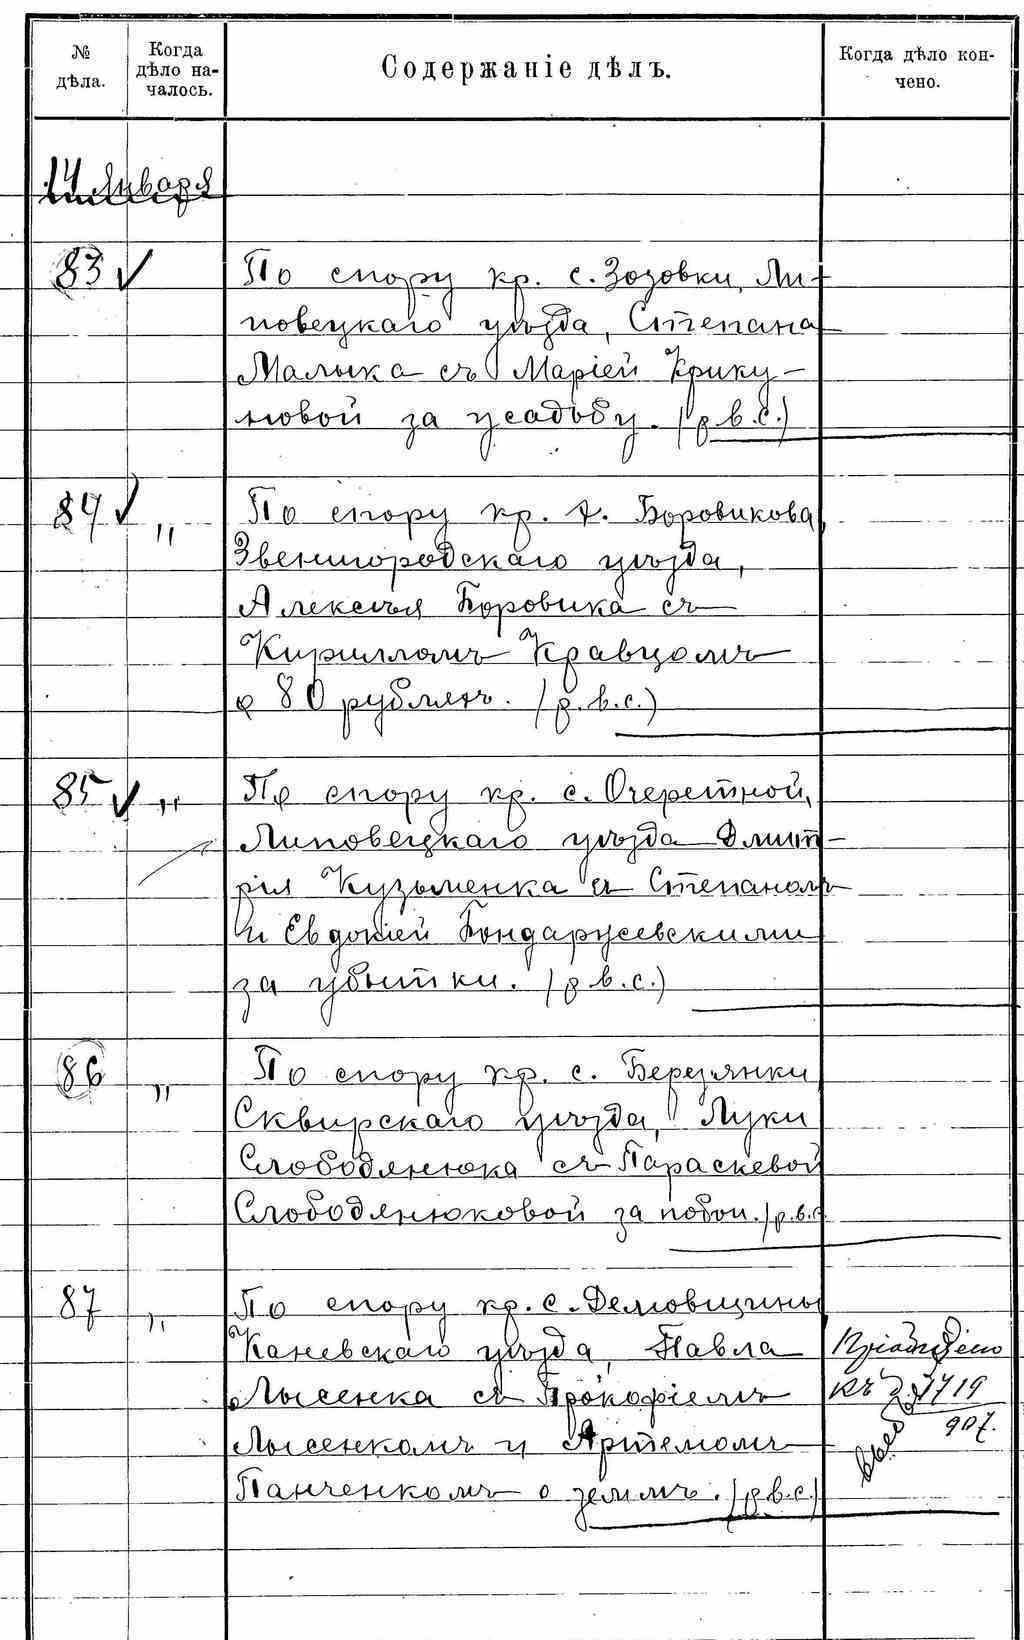 № дѣла.
Когда дѣло на-
чалось.
Содержаніе дѣлъ.
Когда дѣло кон-
чено.
14 января
83 По спору кр. с. Зозовки, Ли-
повецкаго уѣзда, Степана
Малыка съ Маріей Крику-
новой за усадьбу. (р.в.с.)
84 " По спору кр. д. Боровикова,
Звенигородскаго уѣзда,
Алексѣя Боровика съ
Кирилломъ Кравцомъ
о 80 рубляхъ. (р.в.с.)
85 " По спору кр. с. Очеретной,
Липовецкаго уѣзда Дмит-
рія Кузьменка съ Степаномъ
и Евдокіей Бондарусевскими
за убытки. (р.в.с.)
86 " По спору кр. с. Березянки
Сквирскаго уѣзда, Луки
Слободянюка съ Параскевой
Слободянюковой за побои. (р.в.с.
87 " По спору кр. с. Демовщины
Каневскаго уѣзда, Павла
Лысенка съ Прокофіемъ
Лысенкомъ и Артемомъ
Панченкомъ о землѣ. (р.в.с.)
къ д. 1719
907.